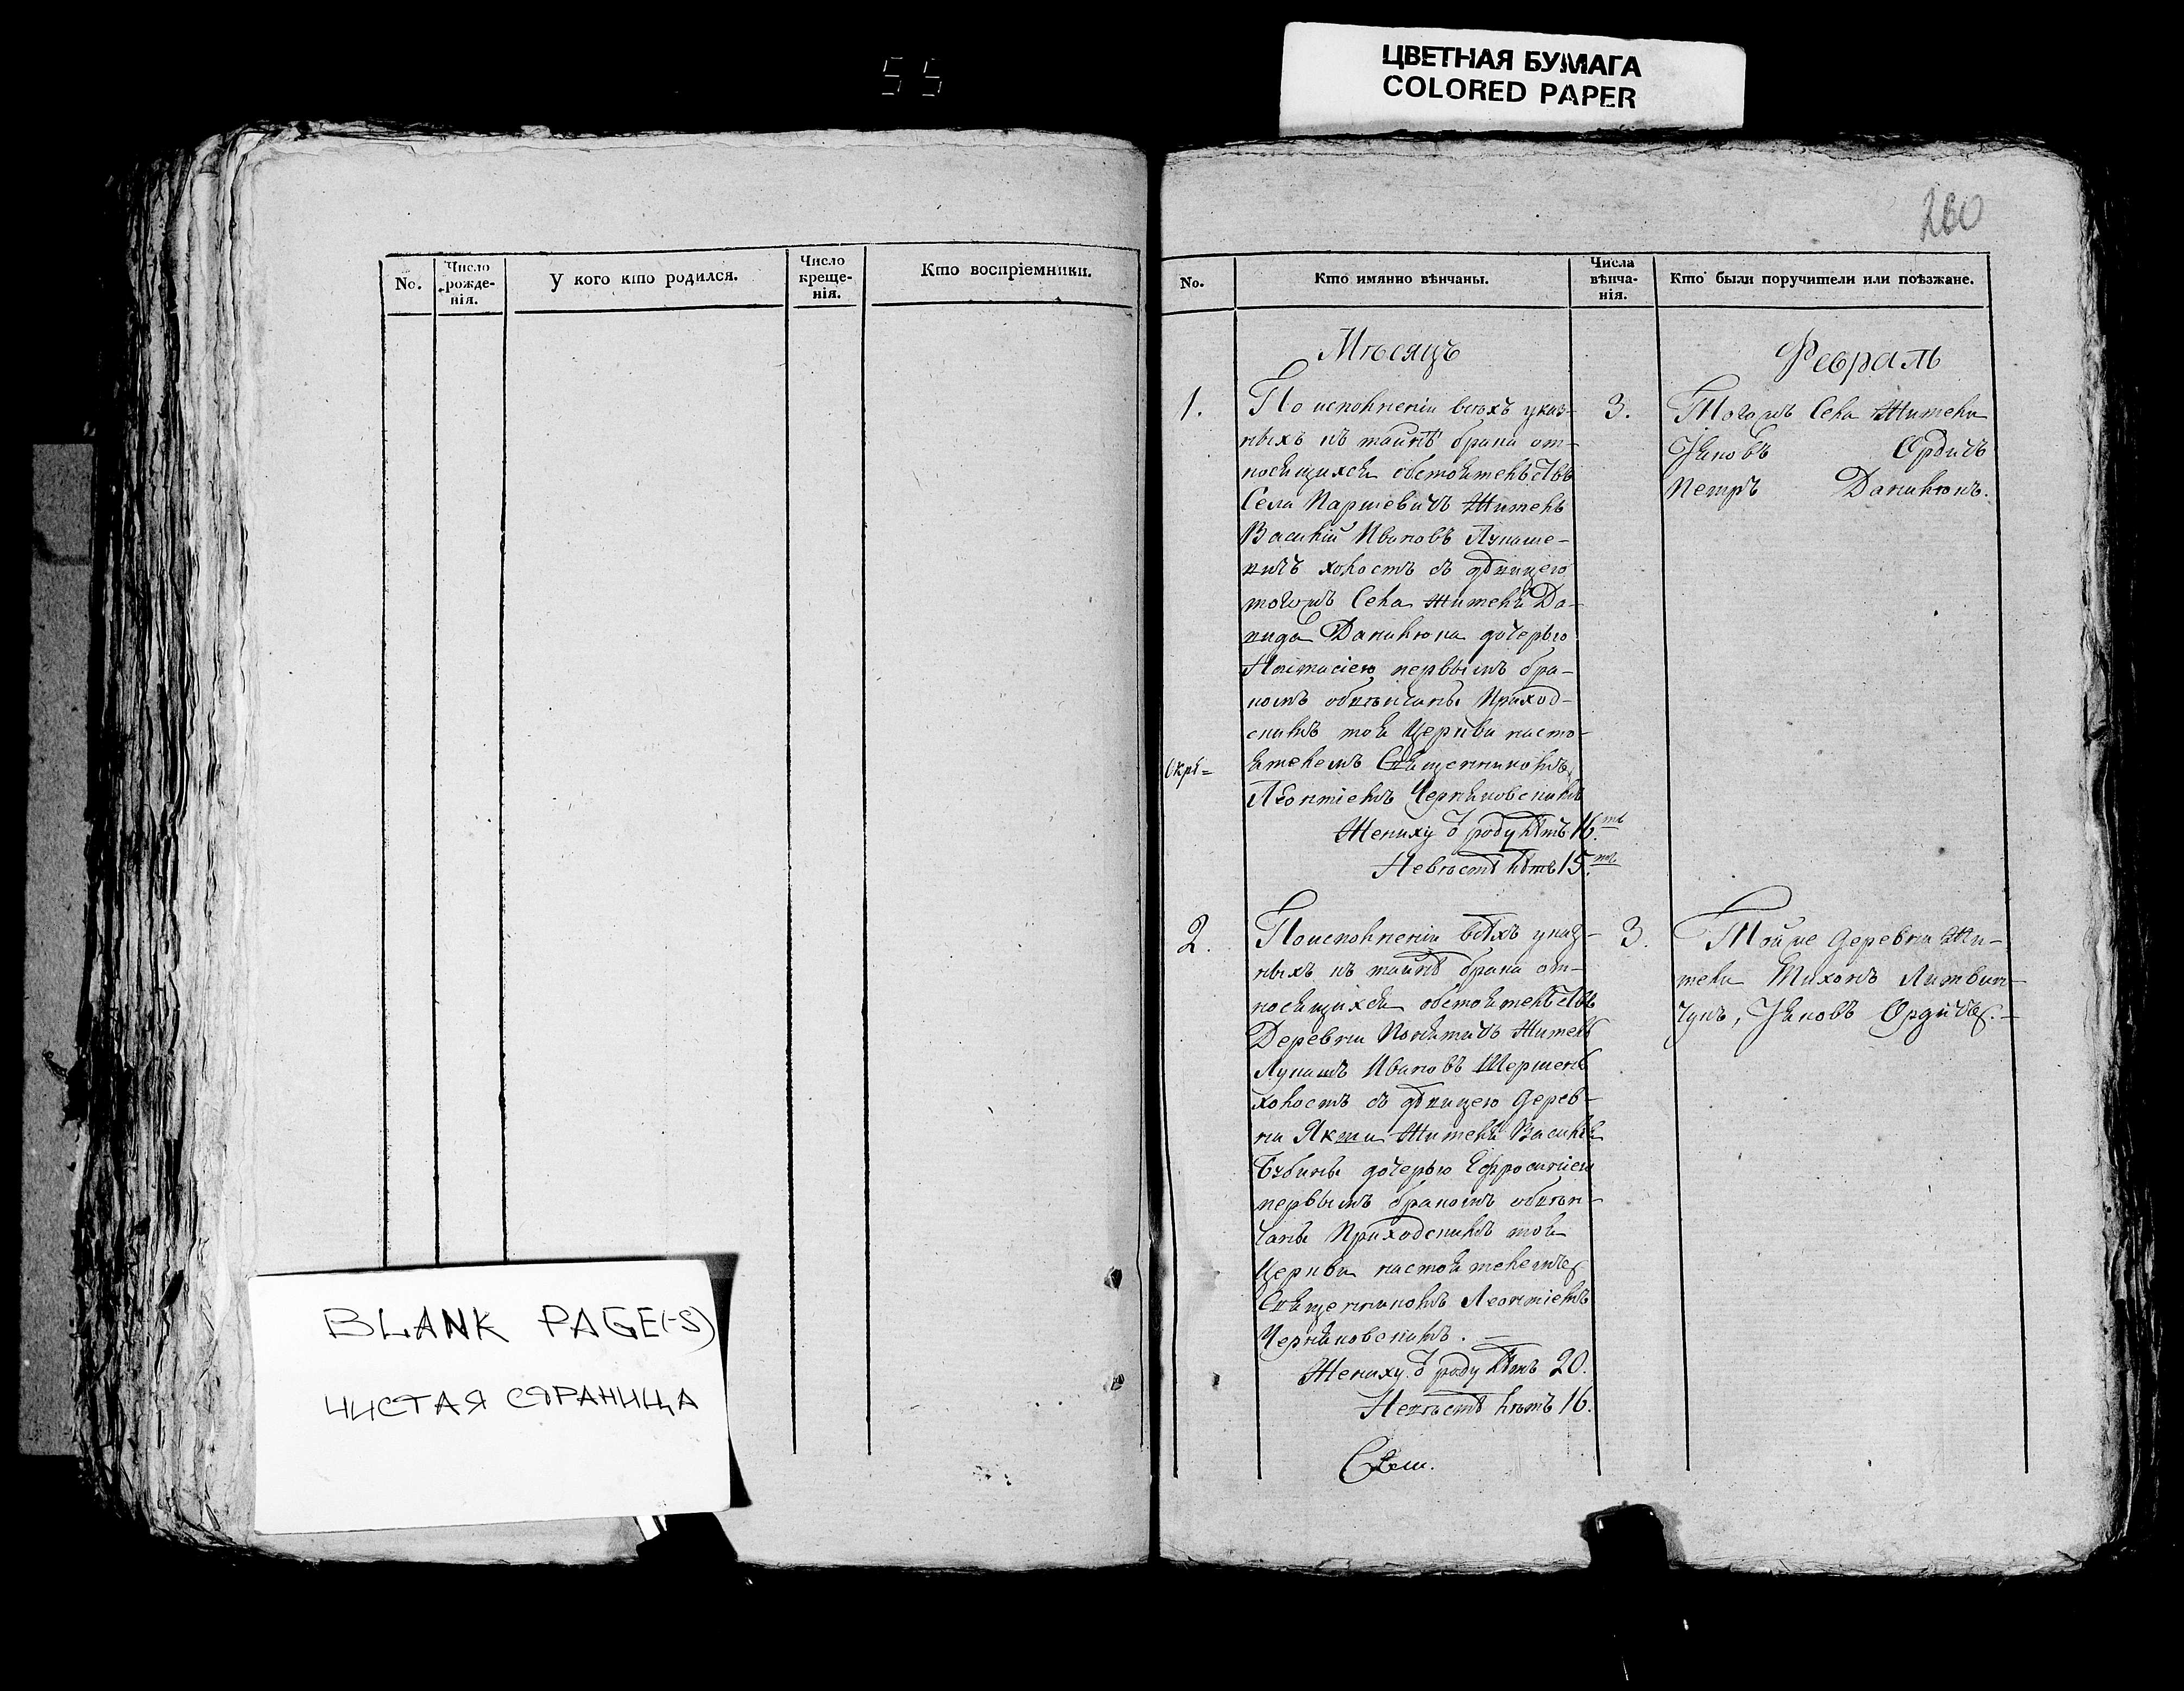 55
ЦВЕТНАЯ БУМАГА
COLORED PAPER
260
No.
Число рожденія.
У кого кто родился.
Число крещенія.
Кто воспріемники.
BLANK PAGE(-S)
ЧИСТАЯ СТРАНИЦА
No.
Кто имянно вѣнчаны.
Числа вѣнчанія.
Кто были поручители или поѣзжане.
Мѣсяцъ
Февраль
1.
По исполненіи всѣхъ указ-
ныхъ къ тайнѣ брака от-
носящихся обстоятельствъ
Села Паршевичъ Житель
Василій Ивановъ Лукаше-
вичъ холостъ съ дѣвицею
тогожъ Села Жителя Да-
вида Данилюка дочерью
Настасіею первымъ бра-
комъ обвѣнчаны Приход-
скимъ тоя Церкви насто-
ятелемъ Священникомъ
Леонтіемъ Черняковскимъ
Жениху ѿ роду лѣтъ 16.ть
Невѣстѣ лѣтъ 15.ть
3.
Тогожъ Села Жители
Яковъ Ордичъ
Петръ Данилюкъ.
2.
По исполненіи всѣхъ указ-
ныхъ къ тайнѣ брака от-
носящихся обстоятельствъ
Деревни Понятичъ Житель
Лукашъ Ивановъ Шершень
холостъ съ дѣвицею Дерев-
ни Якши Жителя Василія
Бубины дочерью Ефросиніею
первымъ бракомъ обвѣн-
чаны Приходскимъ тоя
Церкви настоятелемъ
Священникомъ Леонтіемъ
Черняковскимъ.
Жениху ѿ роду лѣтъ 20.
Невѣстѣ лѣтъ 16.
3.
Той же деревни Жи-
тели Тихонъ Литвин-
чукъ, Яковъ Ордичъ.